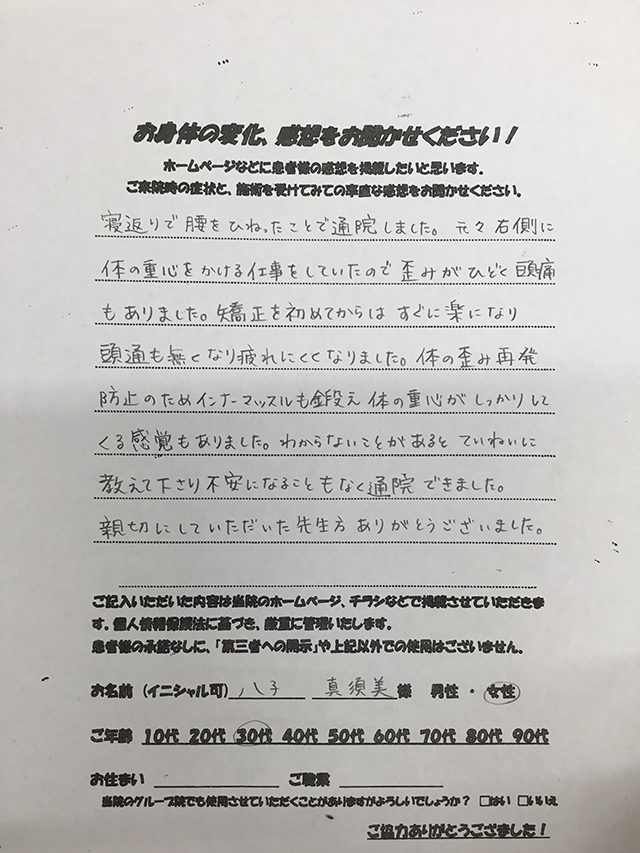 お身体の変化、感想をお聞かせください！
ホームページなどに患者様の感想を掲載したいと思います。
ご来院時の症状と、施術を受けてみての率直な感想をお聞かせください。
寝返りで腰をひねったことで通院しました。元々右側に
体の重心をかける仕事をしていたので歪みがひどく頭痛
もありました。矯正を初めてからはすぐに楽になり
頭通も無くなり疲れにくくなりました。体の歪み再発
防止のためインナーマッスルも鍛え体の重心がしっかりして
くる感覚もありました。わからないことがあるとていねいに
教えて下さり不安になることもなく通院できました。
親切にしていただいた先生方ありがとうございました。
ご記入いただいた内容は当院のホームページ、チラシなどで掲載させていただきま
す。個人情報保護法に基づき、厳重に管理いたします。
患者様の承諾なしに、「第三者への開示」や上記以外での使用はございません。
お名前（イニシャル可） 八子 真須美 様 男性・女性
ご年齢 10代 20代 30代 40代 50代 60代 70代 80代 90代
お住まい ご職業
当院のグループ院でも使用させていただくことがありますがよろしいでしょうか？ □はい □いいえ
ご協力ありがとうございました！